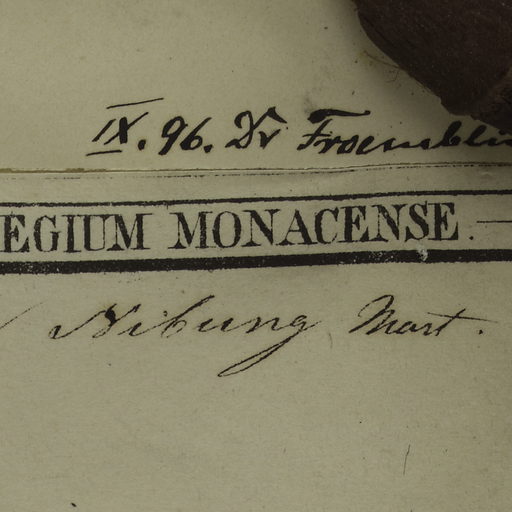 IX. 96. Dr Froembli
EGIUM MONACENSE.
Nibung Mart.